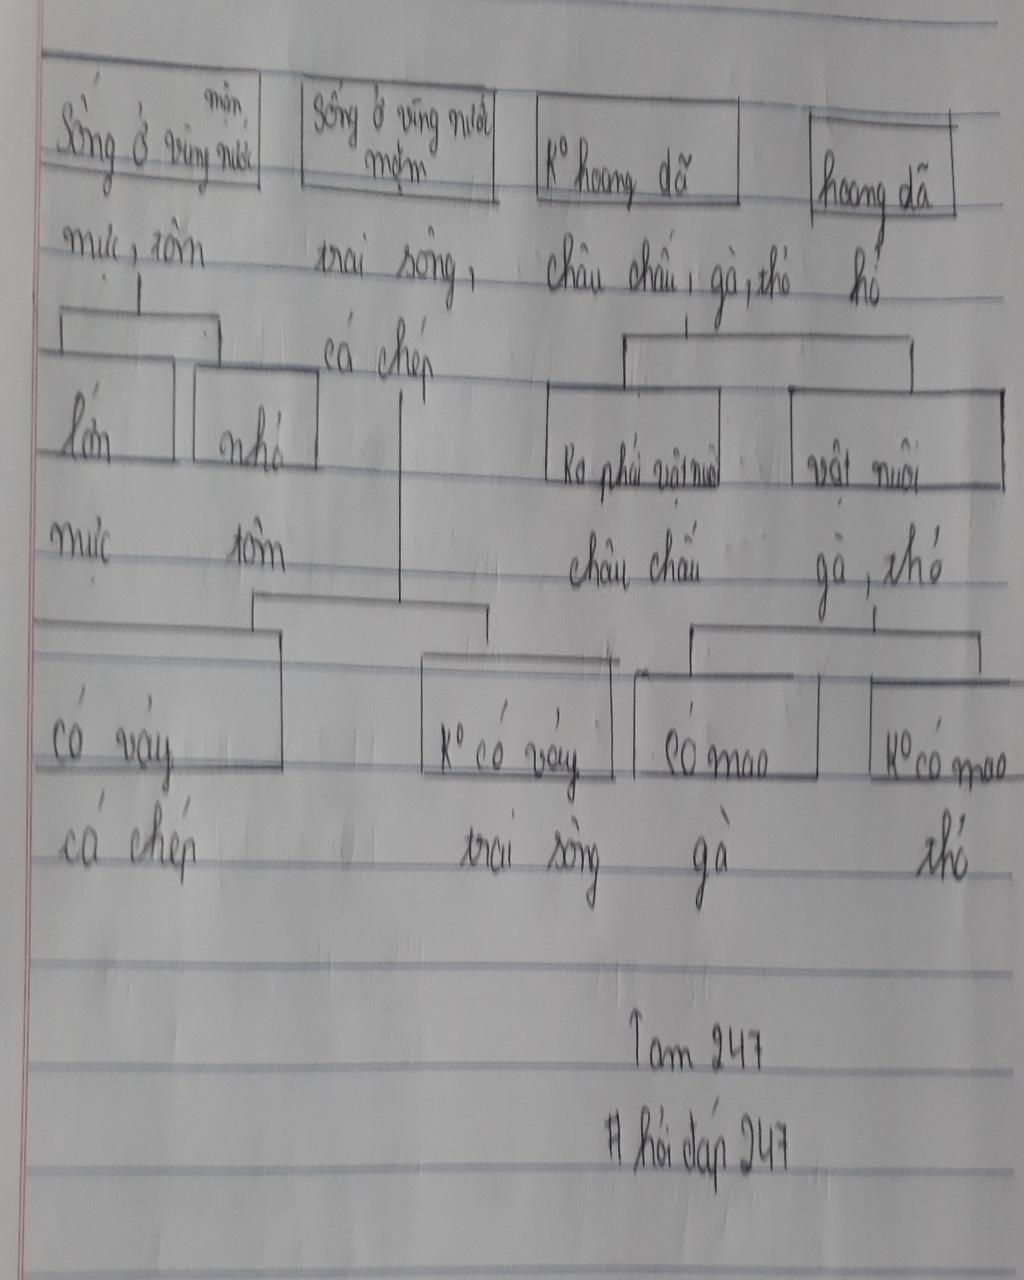 mặn
Sống ở vùng nước
Sống ở vùng nước
mặn
K° hoang dã
hoang dã
mực, tôm
trai sông,
cá chép
châu chấu, gà, thỏ
hổ
lớn
nhỏ
Ko phải vật nuôi
vật nuôi
mực
tôm
châu chấu
gà, thỏ
có vảy
K° có vảy
Có mao
K° có mao
cá chép
trai sông
gà
thỏ
Tam 247
# hỏi đáp 247